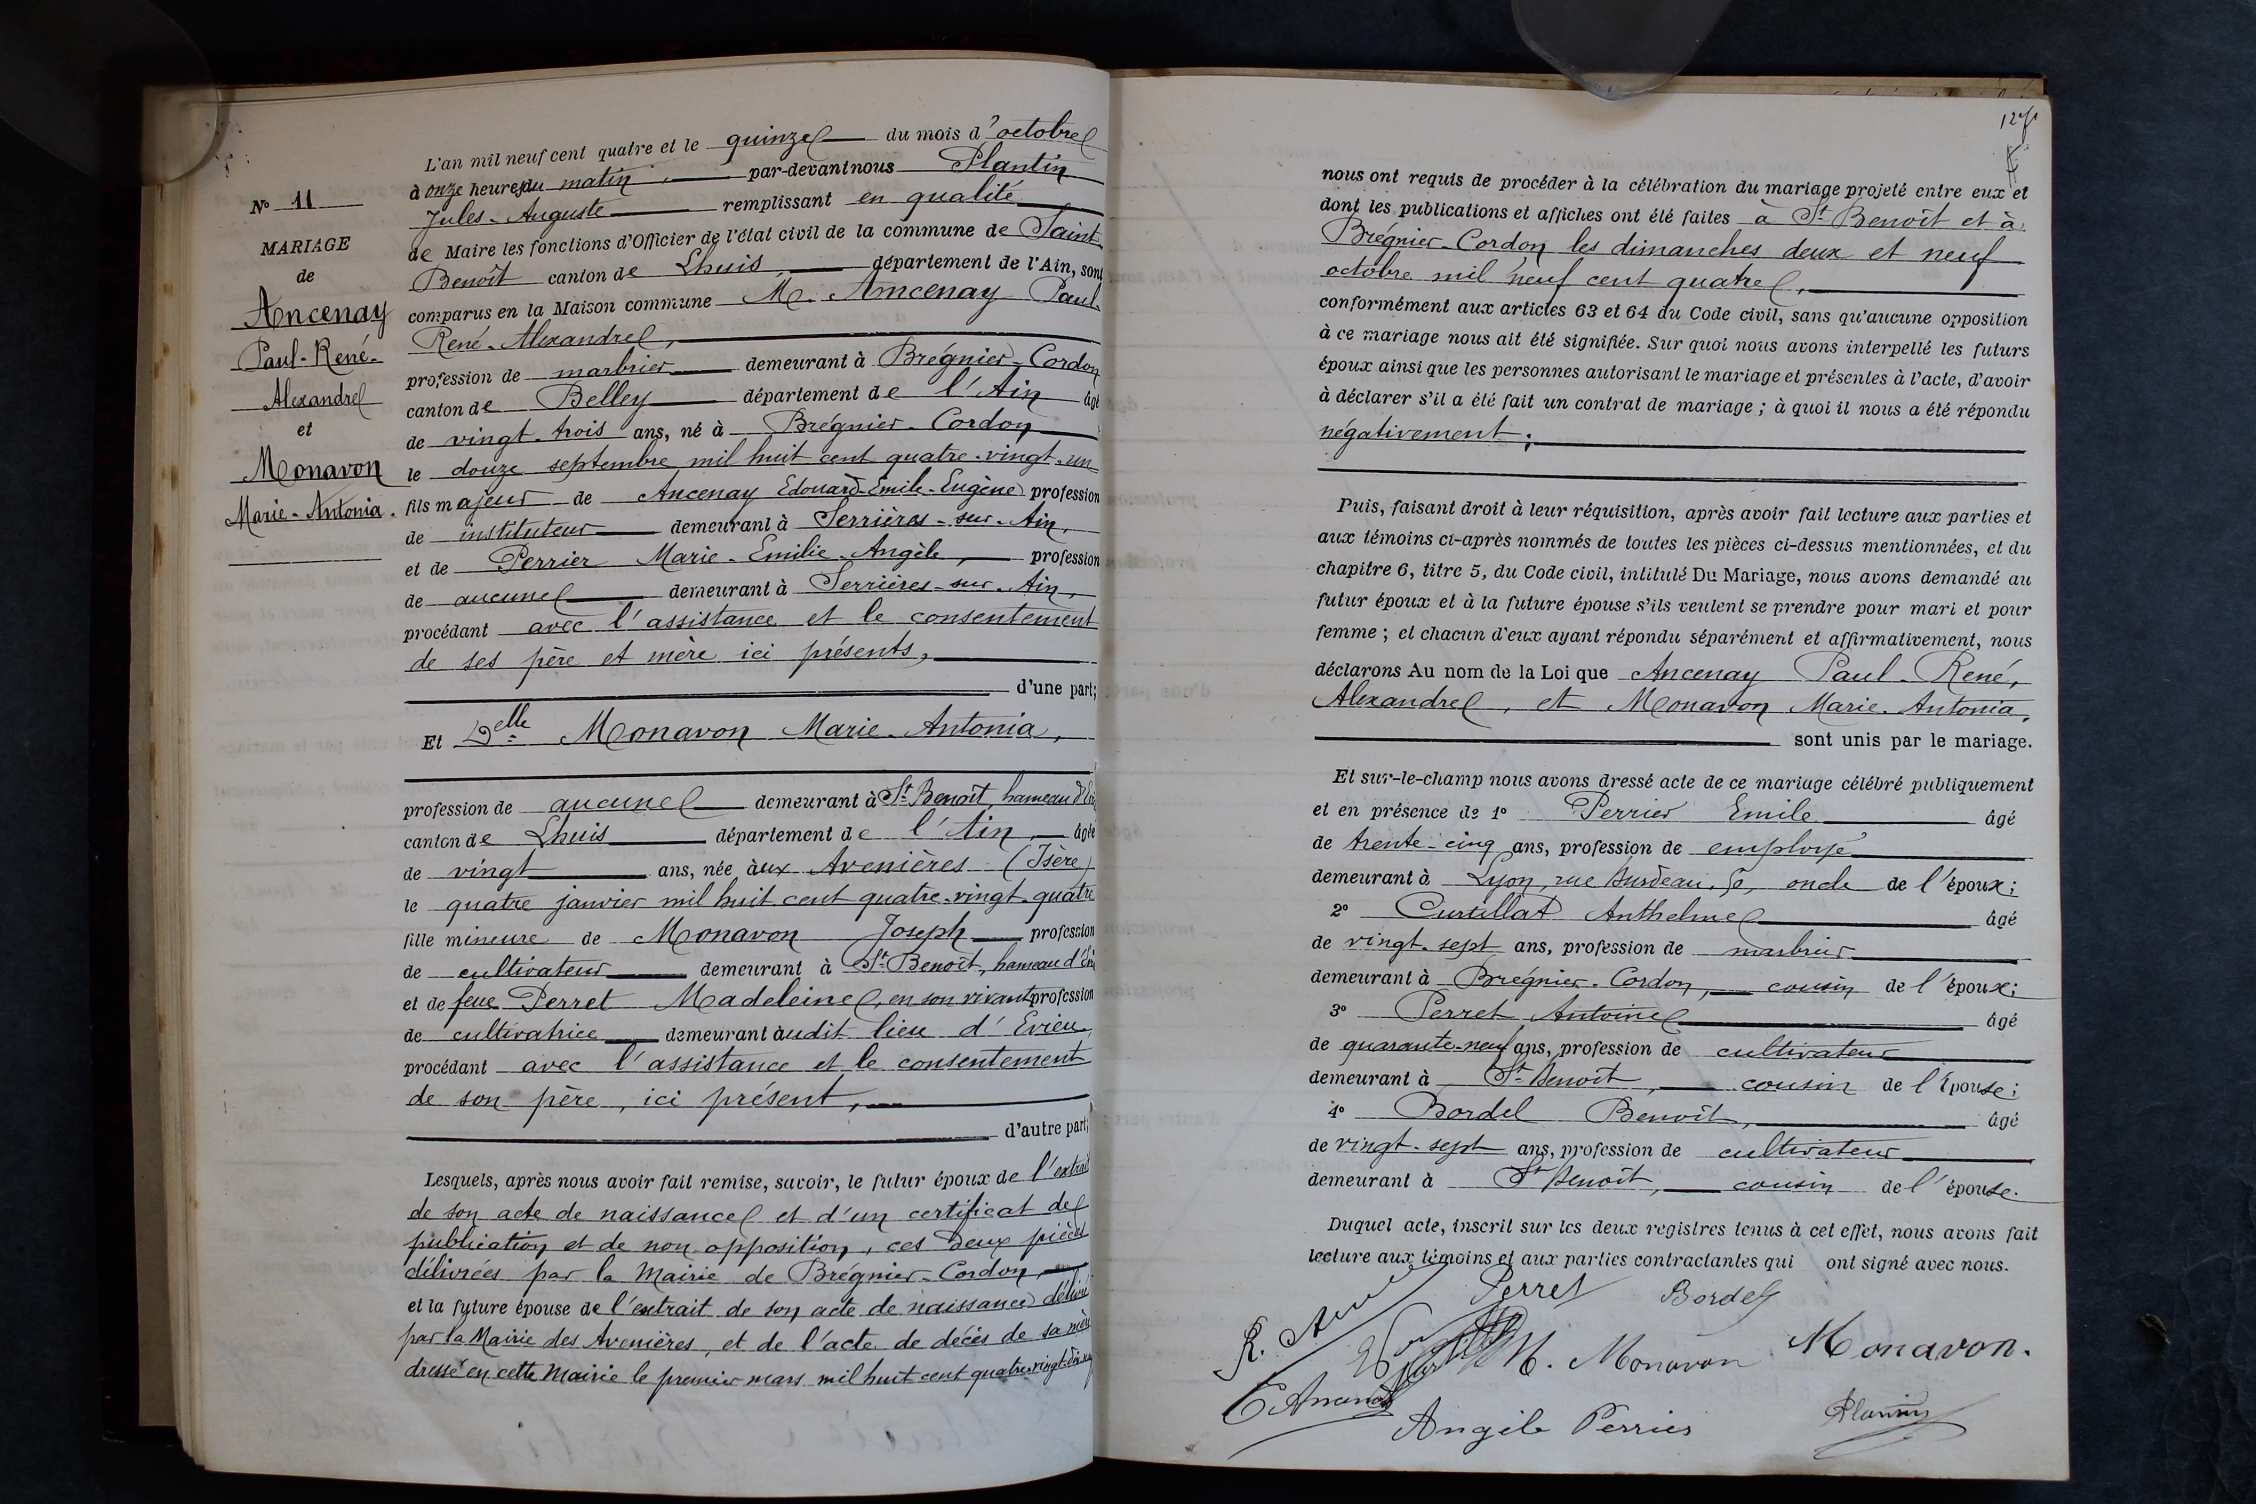 N° 11
MARIAGE
de
Ancenay
Paul-René-
Alexandre
et
Monavon
Marie-Antonia.
L'an mil neuf cent quatre et le quinze du mois d'octobre
à onze heures du matin, par-devant nous Plantin
Jules-Auguste remplissant en qualité
de Maire les fonctions d'Officier de l'état civil de la commune de Saint-
Benoît canton de Lhuis département de l'Ain, sont
comparus en la Maison commune M. Ancenay Paul-
René-Alexandre,
profession de marbrier demeurant à Brégnier-Cordon
canton de Belley département de l'Ain âgé
de vingt-trois ans, né à Brégnier-Cordon
le douze septembre mil huit cent quatre-vingt-un
fils majeur de Ancenay Edouard-Emile-Eugène profession
de instituteur demeurant à Serrières-sur-Ain,
et de Perrier Marie-Emilie-Angèle, profession
de aucune demeurant à Serrières-sur-Ain,
procédant avec l'assistance et le consentement
de ses père et mère ici présents,
d'une part;
Et Delle Monavon Marie-Antonia,
profession de aucune demeurant à St Benoît, hameau
canton de Lhuis département de l'Ain, âgée
de vingt ans, née àux Avenières (Isère)
le quatre janvier mil huit cent quatre-vingt-quatre
fille mineure de Monavon Joseph profession
de cultivateur demeurant à St Benoît, hameau
et de feue Perret Madeleine, en son vivant profession
de cultivatrice demeurant àudit lieu d'Evieu,
procédant avec l'assistance et le consentement
de son père, ici présent,
d'autre part;
Lesquels, après nous avoir fait remise, savoir, le futur époux de l'extrait
de son acte de naissance et d'un certificat de
publication et de non opposition, ces deux pièces
délivrées par la Mairie de Brégnier-Cordon,
et la future épouse de l'extrait de son acte de naissance délivré
par la Mairie des Avenières, et de l'acte de décès de sa mère
dressé en cette Mairie le premier mars mil huit cent
nous ont requis de procéder à la célébration du mariage projeté entre eux et
dont les publications et affiches ont été faites à St Benoît et à
Brégnier-Cordon les dimanches deux et neuf
octobre mil neuf cent quatre,
conformément aux articles 63 et 64 du Code civil, sans qu'aucune opposition
à ce mariage nous ait été signifiée. Sur quoi nous avons interpellé les futurs
époux ainsi que les personnes autorisant le mariage et présentes à l'acte, d'avoir
à déclarer s'il a été fait un contrat de mariage ; à quoi il nous a été répondu
négativement;
Puis, faisant droit à leur réquisition, après avoir fait lecture aux parties et
aux témoins ci-après nommés de toutes les pièces ci-dessus mentionnées, et du
chapitre 6, titre 5, du Code civil, intitulé Du Mariage, nous avons demandé au
futur époux et à la future épouse s'ils veulent se prendre pour mari et pour
femme ; et chacun d'eux ayant répondu séparément et affirmativement, nous
déclarons Au nom de la Loi que Ancenay Paul-René,
Alexandre, et Monavon Marie-Antonia,
sont unis par le mariage.
Et sur-le-champ nous avons dressé acte de ce mariage célébré publiquement
et en présence de 1° Perrier Emile âgé
de trente-cinq ans, profession de employé
demeurant à Lyon, rue Burdeau, 50, oncle de l'époux;
2° Curtillat Anthelme âgé
de vingt-sept ans, profession de marbrier
demeurant à Brégnier-Cordon, cousin de l'époux;
3° Perret Antoine âgé
de quarante-neuf ans, profession de cultivateur
demeurant à St-Benoît, cousin de l'épouse;
4° Bordel Benoît, âgé
de vingt-sept ans, profession de cultivateur
demeurant à St Benoît, cousin de l'épouse.
Duquel acte, inscrit sur les deux registres tenus à cet effet, nous avons fait
lecture aux témoins et aux parties contractantes qui ont signé avec nous.
Perret Bordel
M. Monavon Monavon.
Angèle Perrier Plantin